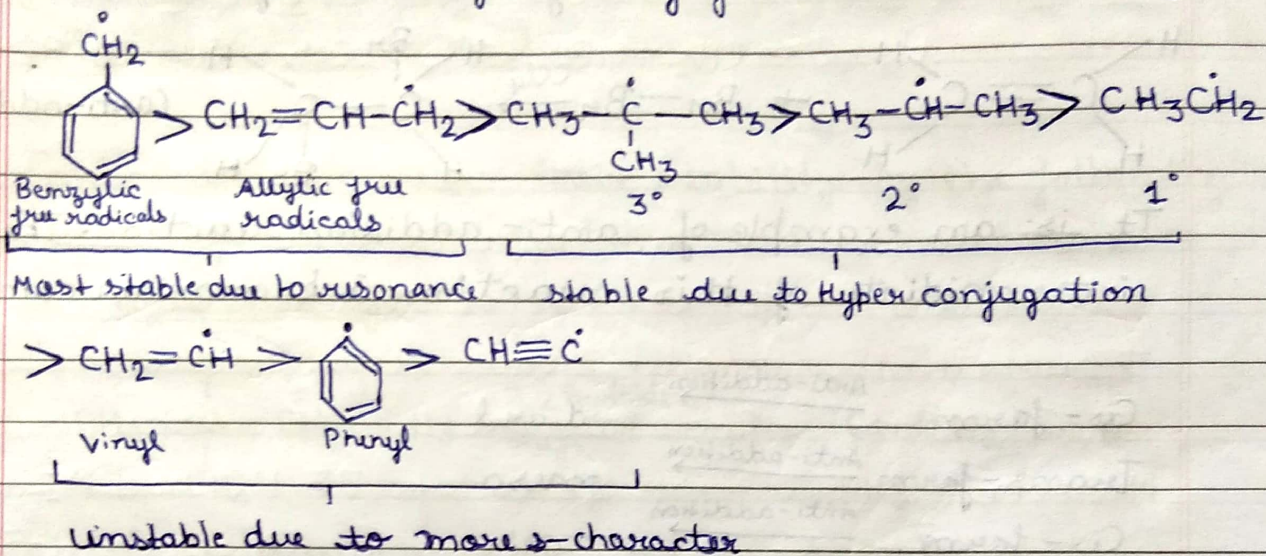 ĊH2
> CH2=CH-ĊH2 > CH3-Ċ-CH3 > CH3-ĊH-CH3 > CH3ĊH2
CH3
Benzylic free radicals Allylic free radicals 3° 2° 1°
Mast stable due to resonance stable due to Hyper conjugation
> CH2=ĊH > > CH≡Ċ
Vinyl Phenyl
unstable due to more s-character